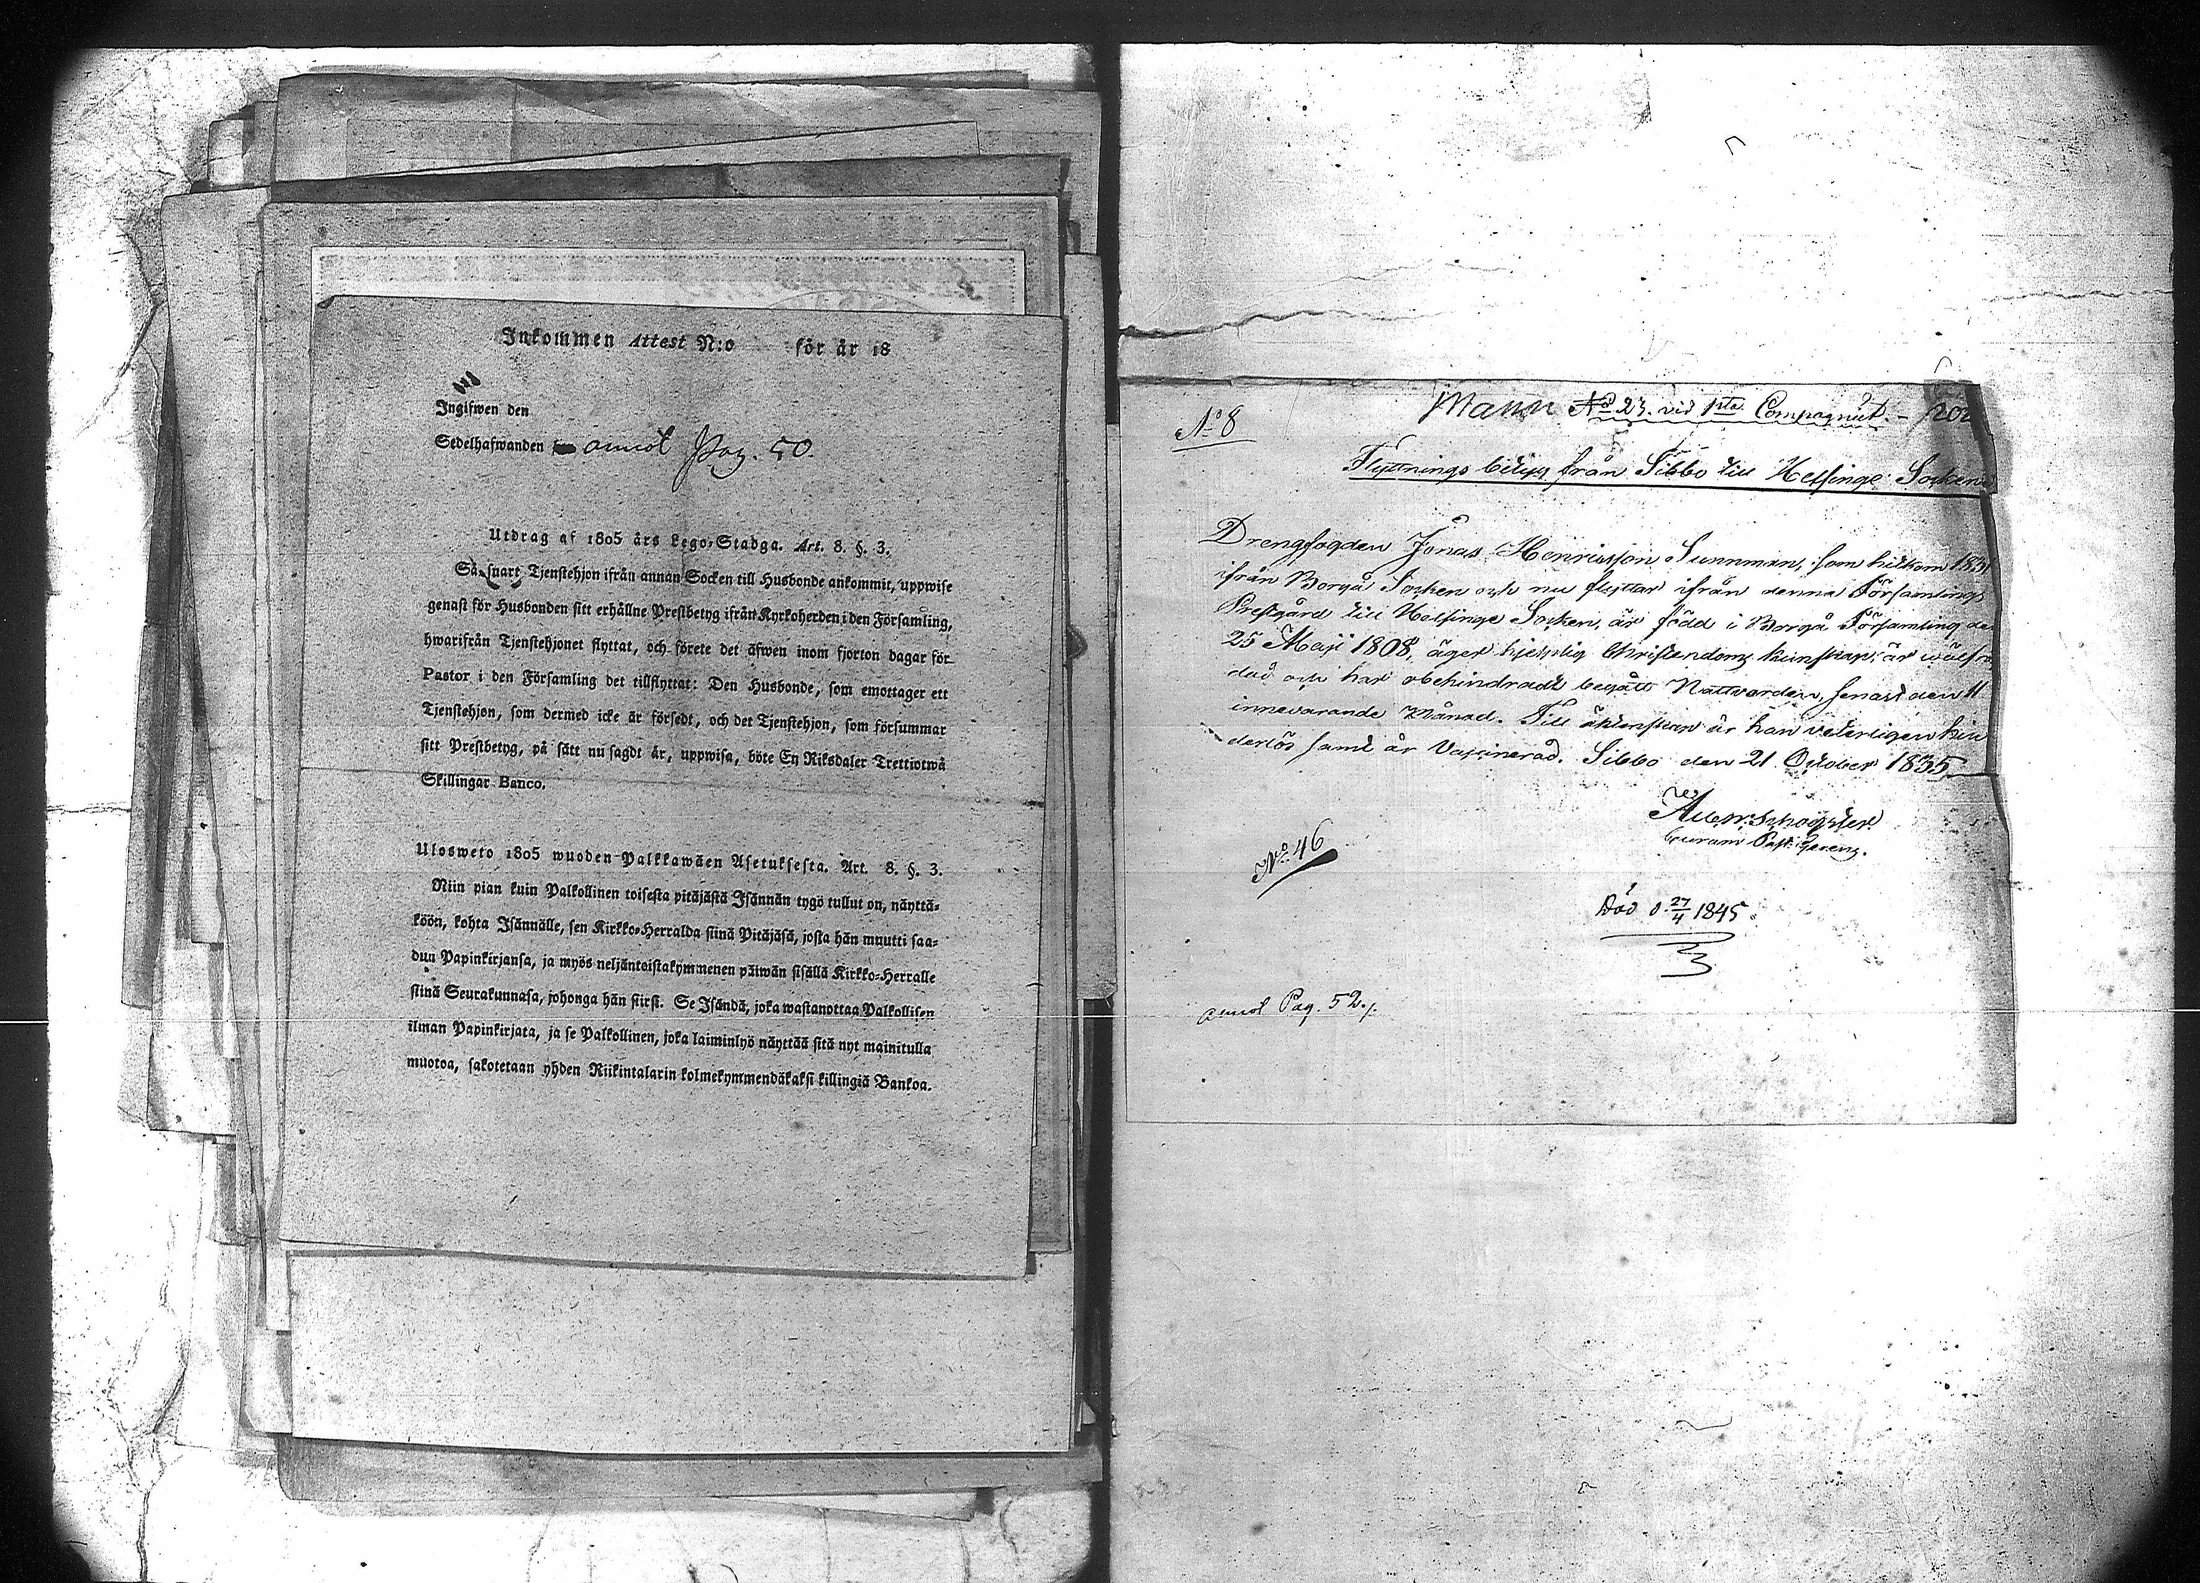 Inkommen Attest N:o för år 18
Ingifwen den
Sedelhafwanden annot Pag. 50.
Utdrag af 1805 års Lego-Stadga. Art. 8. §. 3.
Så snart Tjenstehjon ifrån annan Socken till Husbonde ankommit, uppwise
genast för Husbonden sitt erhållne Prestbetyg ifrån Kyrkoherden i den Församling,
hwarifrån Tjenstehjonet flyttat, och förete det äfwen inom fjorton dagar för
Pastor i den Församling det tillflyttat: Den Husbonde, som emottager ett
Tjenstehjon, som dermed icke är försedt, och det Tjenstehjon, som försummar
sitt Prestbetyg, på sätt nu sagdt är, uppwisa, böte En Riksdaler Trettiotwå
Skillingar Banco.
Ulosweto 1805 wuoden Palkkawäen Asetuksesta. Art. 8. §. 3.
Niin pian kuin Palkollinen toisesta pitäjästä Isännän tygö tullut on, näyttä-
köön, kohta Isännälle, sen Kirkko-Herralda siinä Pitäjäsä, josta hän muutti saa-
dun Papinkirjansa, ja myös neljäntoistakymmenen päiwän sisällä Kirkko-Herralle
siinä Seurakunnasa, johonga hän siirsi. Se Isändä, joka wastanottaa Palkollisen
ilman Papinkirjata, ja se Palkollinen, joka laiminlyö näyttää sitä nyt mainitulla
muotoa, sakotetaan yhden Riikintalarin kolmekymmendäkaksi killingiä Bankoa.
Mann No 23. vid 1sta Compagniet. - 202
No 8
Flyttnings betyg från Sibbo till Helsinge Socken
Drengfogden Jonas Henricsson Sunnman, som hitkom 1831
ifrån Borgå Socken och nu flyttar ifrån denna Församlings
Prestgård till Helsinge Socken, är född i Borgå Församling den
25 Maji 1808, äger hjelplig Christendoms kunskap, är wälfre
dad och har obehindradt begått Nattvarden, senast den 11
innevarande Månad. Till äktenskap är han veterligen hin
derlös samt är Vaccinerad. Sibbo den 21 October 1835.
No 46
Död d. 27/4 1845.
annot Pag. 52.